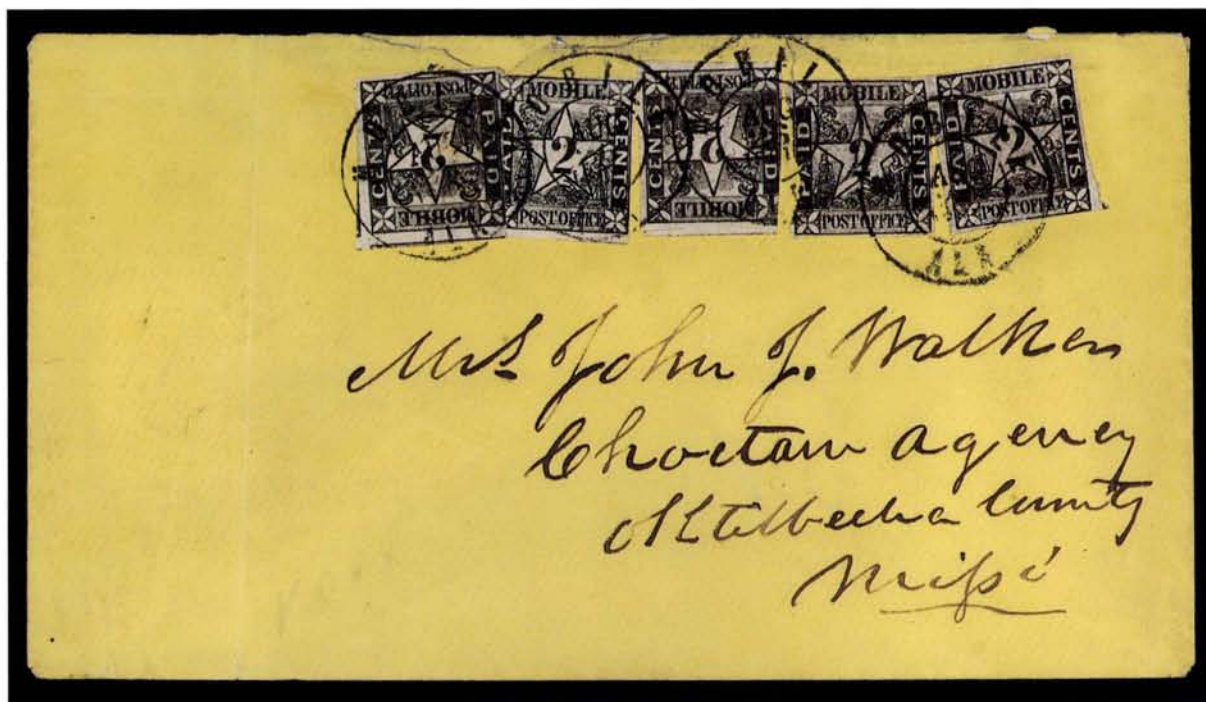 MOBILE PAID 2 CENTS POST OFFICE
MOBILE PAID 2 CENTS POST OFFICE
MOBILE PAID 2 CENTS POST OFFICE
MOBILE PAID 2 CENTS POST OFFICE
MOBILE PAID 2 CENTS POST OFFICE
ALA
Mrs John J. Walker
Choctaw Agency
Oktibbeha County
Missi